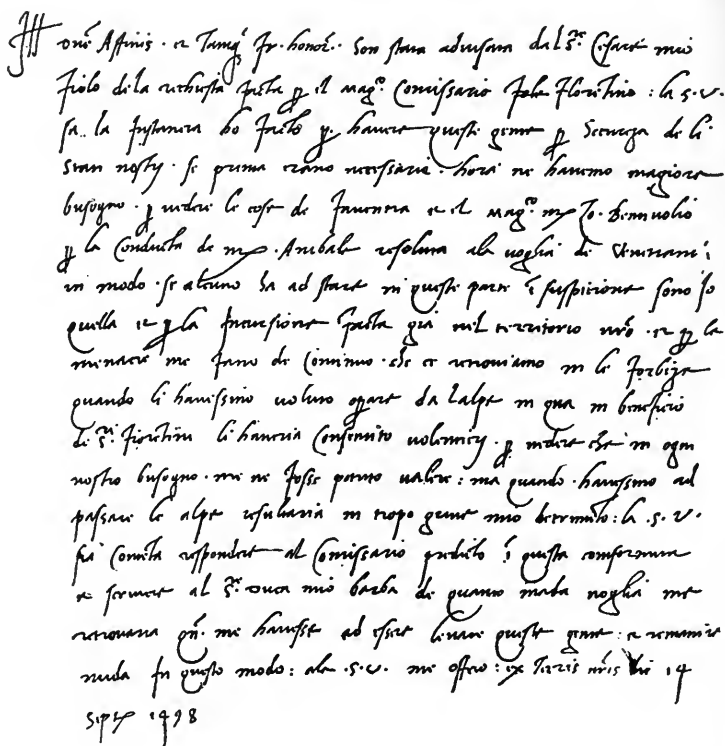 Ill one Affinis · et Tamq fr · honor · Son stata advisata dal S.re Cesare mio
Fiolo dila richiesta facta p el mag.co Comissario Flortino : la S · V ·
sa · la Instantia ho facto p havere queste gente p Secureza de li
Stati nostri · se prima erano necessarie · hora ne havemo magiore
busogno · p vedere le cose de Faventia et el mag.co m Jo · Bentivolio
p la Conducta de m · Anibale resoluta ale voglia de Venetiani
in modo · se alcuno ha ad stare in queste parte i suspitione sono Jo
quella et p la Incursione facta gia nel territorio nro · et p le
menacie me fano de Continuo · che ce retroviamo in le forbize
quando li havessino voluto operare da l alpe in qua in beneficio
de S.ri Fiortini li haveria Consentito volentieri · p vedere che in ogni
nostro busogno · me ne fosse potuto valere : ma quando · havessino ad
passare le alpe resultaria in tropo grave mio detrimto : la · S · V ·
sia Contenta respondere al Comissario predicto i questa conformita
et scrivere al S.re duca mio barba de quanto mala voglia me
retrovaria qn · me havesse ad essere levate queste gente : et remanire
nuda In questo modo : ala · S · V · me offero : ex Terris nris die 14
Sept 1498